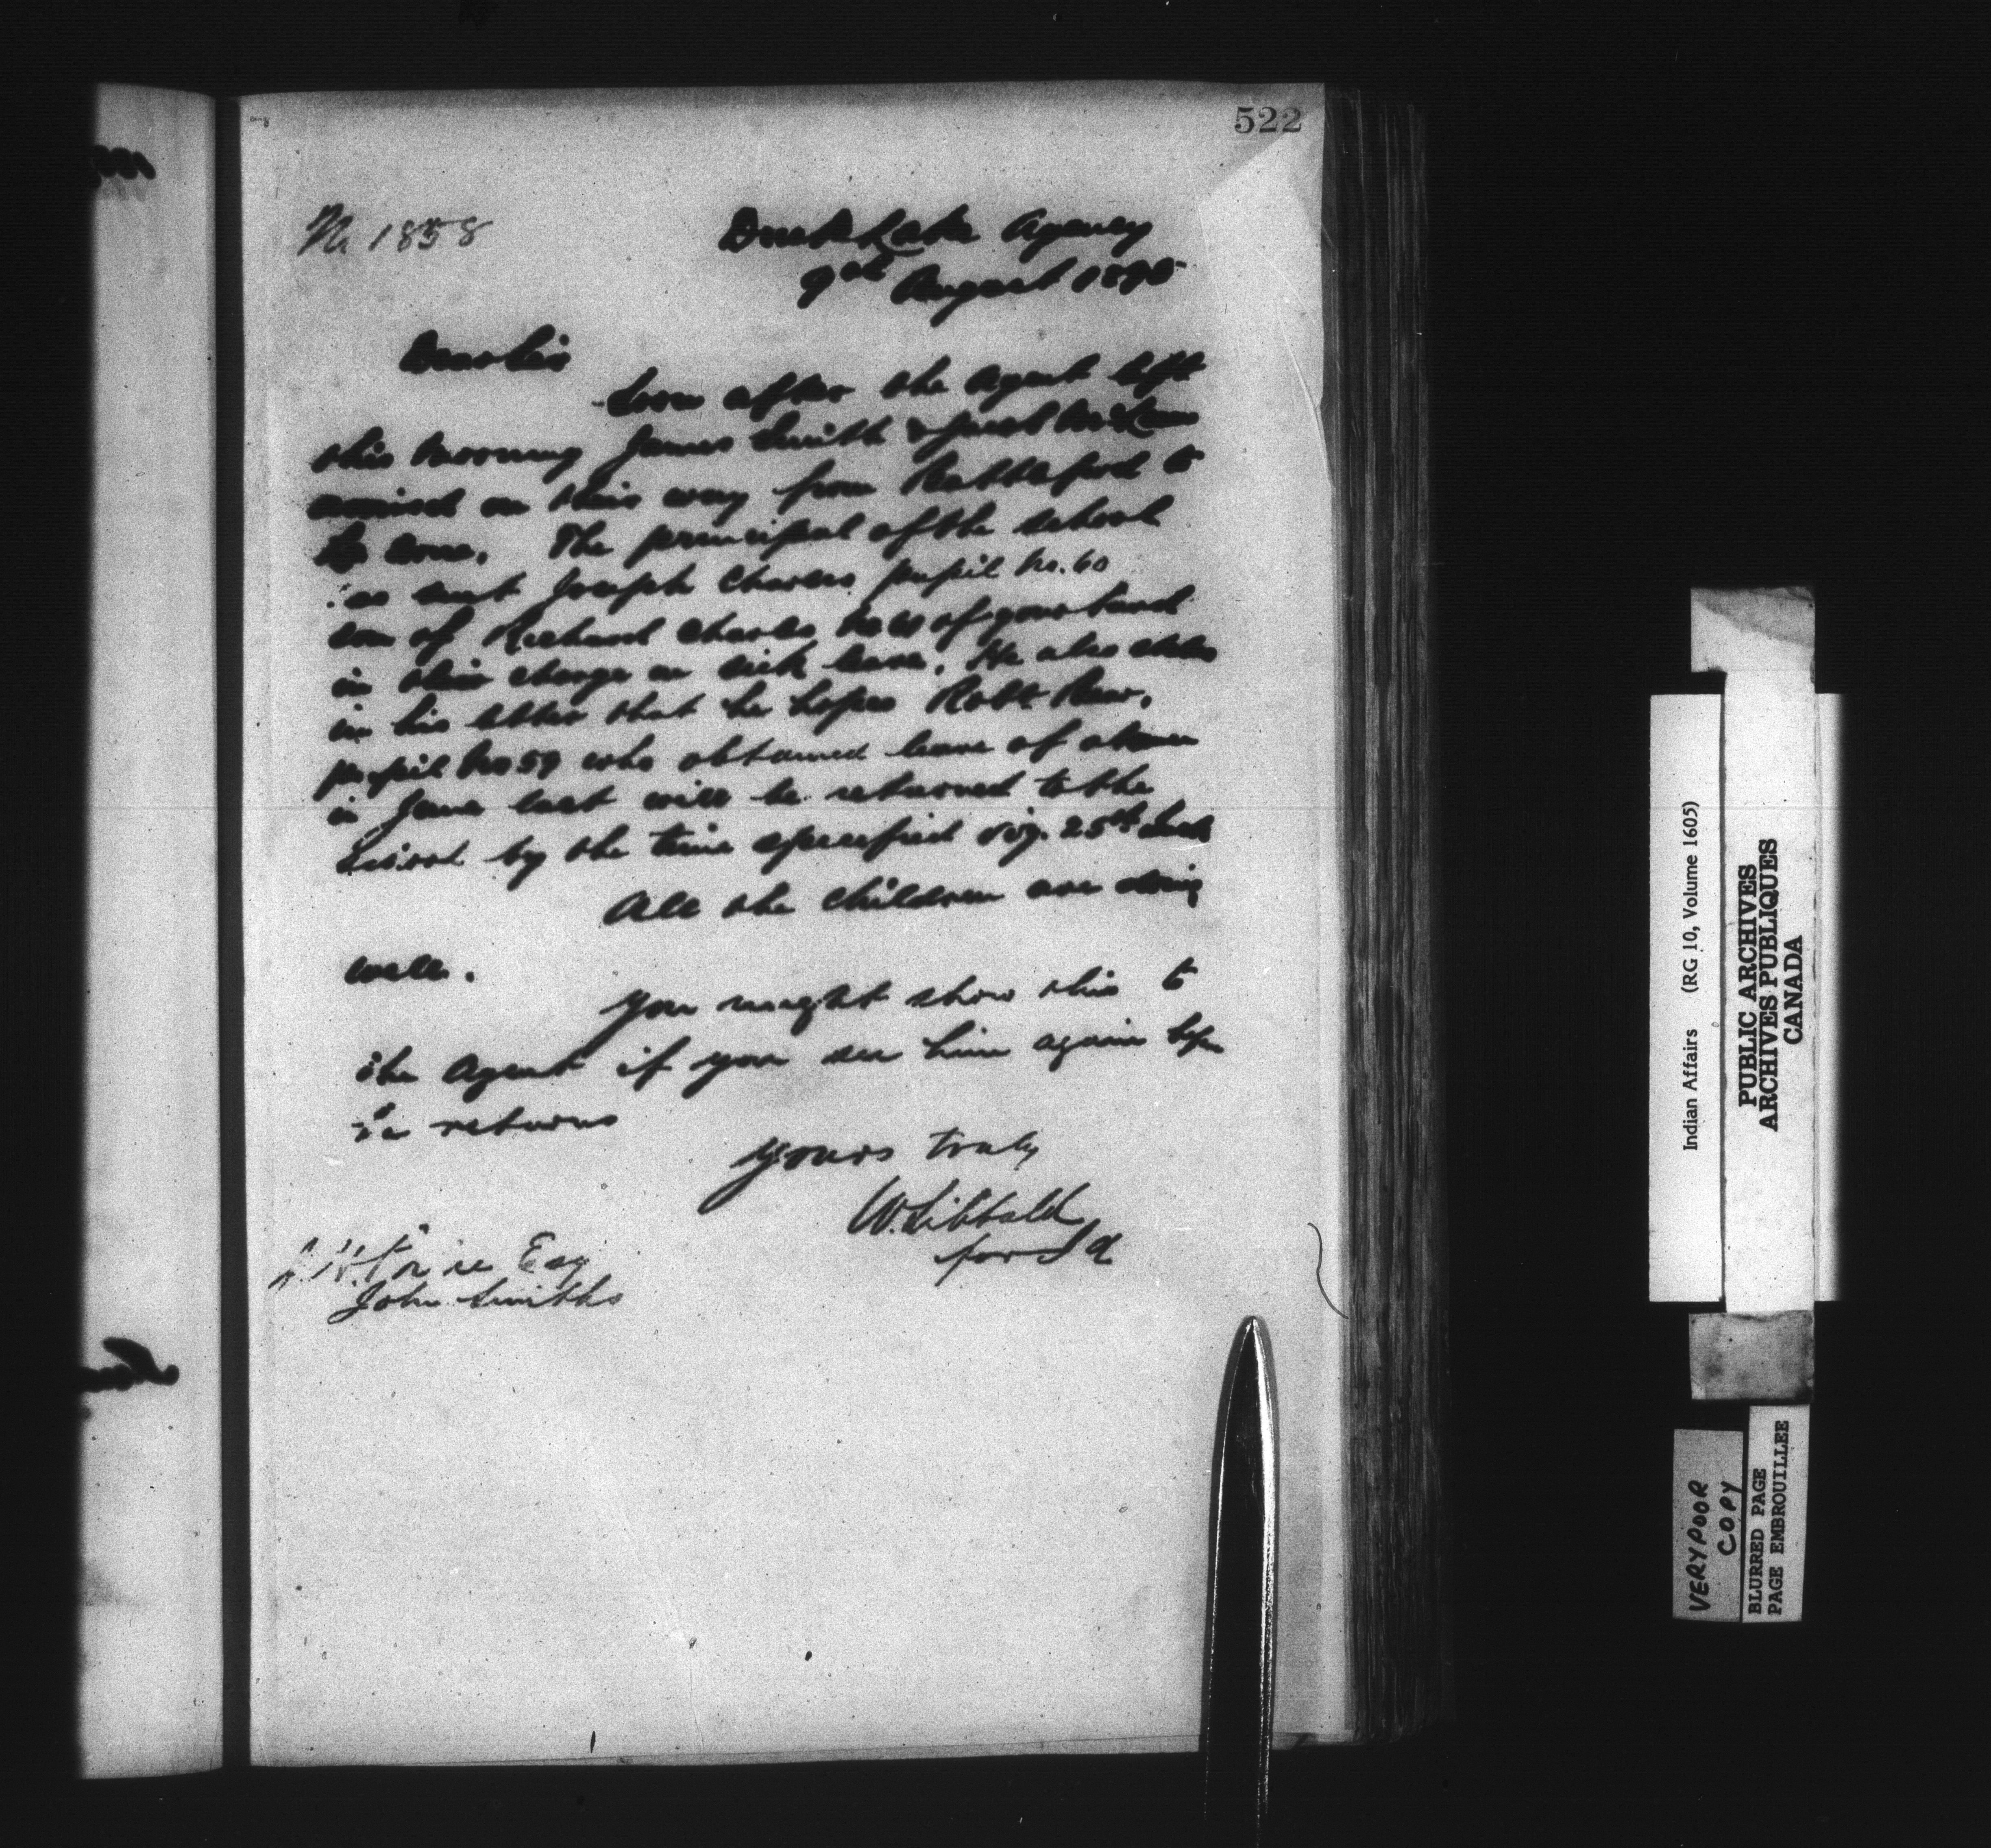 522
No 1858
Duck Lake Agency
9th August 1895
Dear Sir
Soon after the Agent left
this morning James Smith & Jacob McLean
arrived on their way from Battleford to
La Corne. The principal of the school
has sent Joseph Charles pupil No. 60
son of Richard Charles No of your band
in their charge on sick leave. He also states
in his letter that he hopes Robt Bear,
pupil No 59 who obtained leave of absence
in June last will be returned to the
School by the time specified viz. 25th Inst
All the children are doing
well.
You might show this to
the Agent if you see him again before
he returns
Yours truly
W. Sibbald
for I A
Esq
John Smiths
Indian Affairs (RG 10, Volume 1605)
PUBLIC ARCHIVES
ARCHIVES PUBLIQUES
CANADA
VERY POOR
COPY
BLURRED PAGE
PAGE EMBROUILLEE